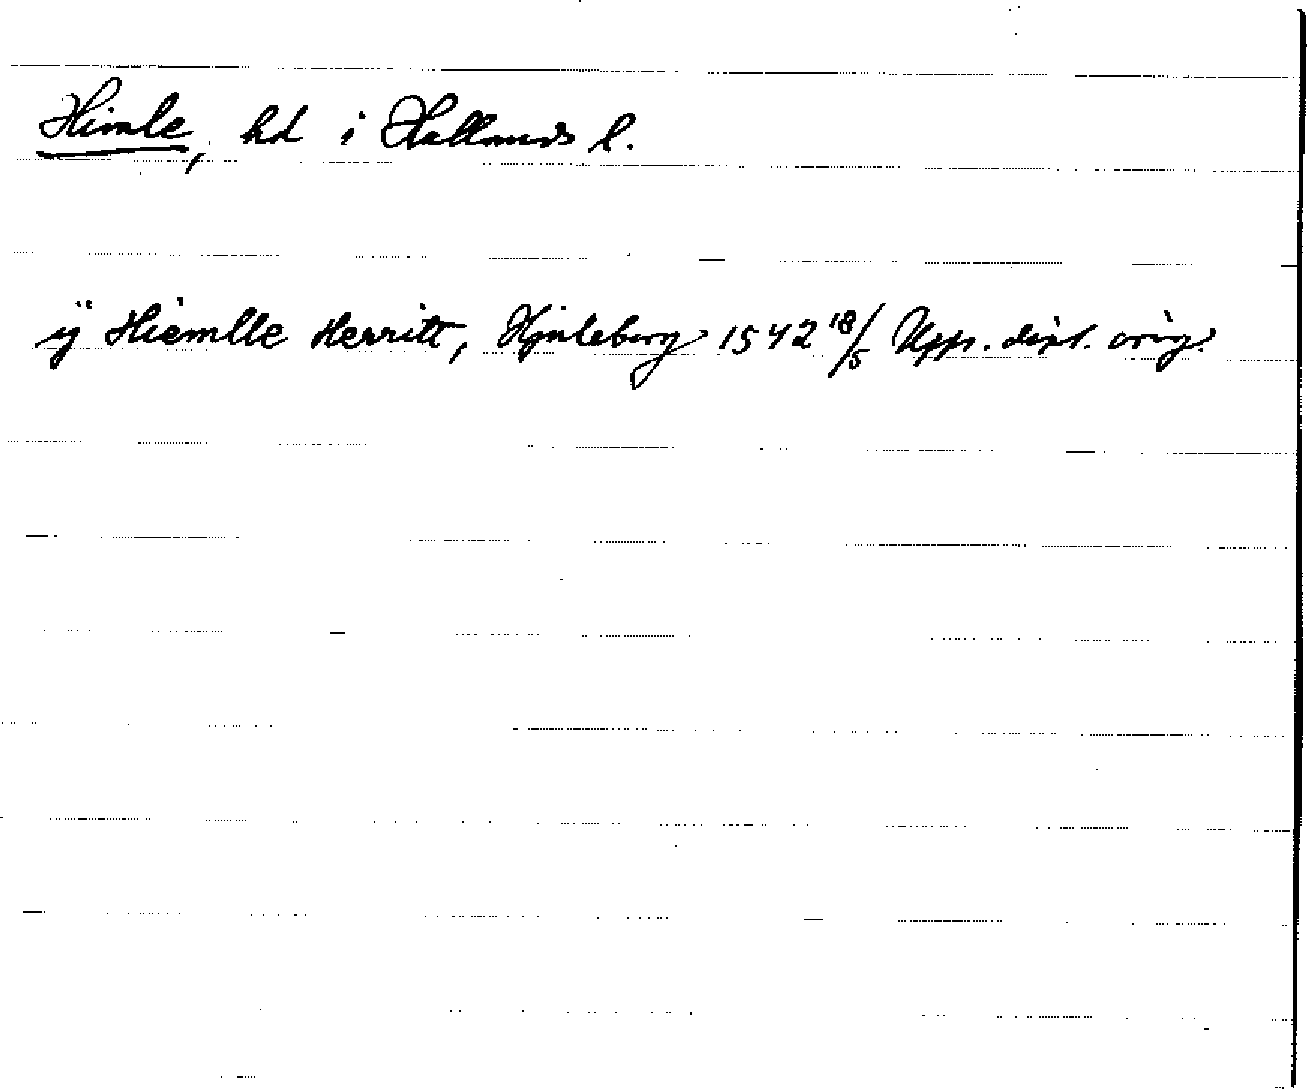 Himle, hd i Hallands l.
ÿ Hiemlle Herritt, Hjuleberg 1542 18/5 Upps. dipl. orig.